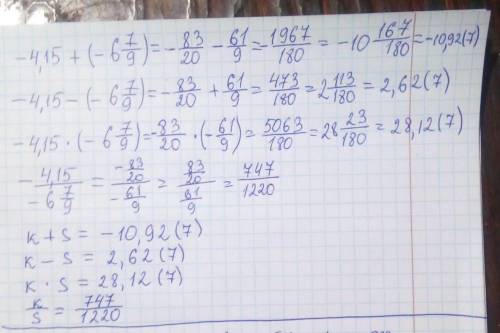 -4,15 + (-6 7/9) = -83/20 - 61/9 = -1967/180 = -10 167/180 = -10,92(7)
-4,15 - (-6 7/9) = -83/20 + 61/9 = 473/180 = 2 113/180 = 2,62(7)
-4,15 · (-6 7/9) = -83/20 · (-61/9) = 5063/180 = 28 23/180 = 28,12(7)
-4,15/-6 7/9 = -83/20/-61/9 = 83/20/61/9 = 747/1220
k + s = -10,92(7)
k - s = 2,62(7)
k · s = 28,12(7)
k/s = 747/1220